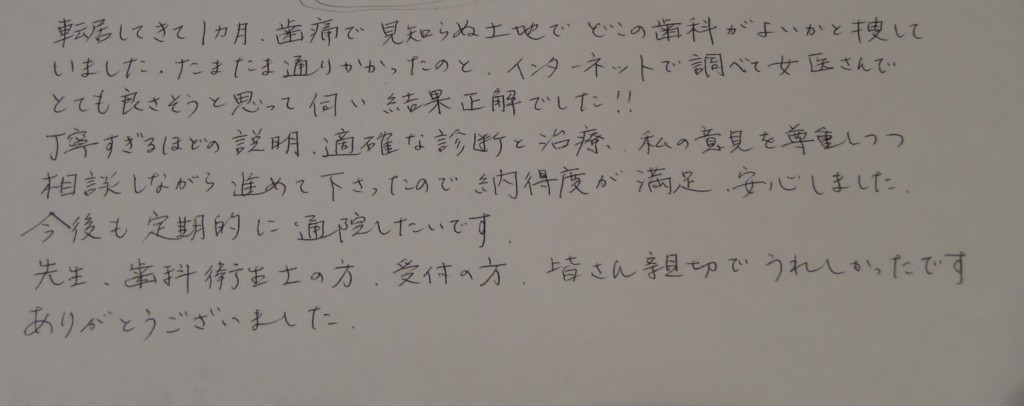 転居してきて1カ月、歯痛で見知らぬ土地でどこの歯科がよいかと捜して
いました。たまたま通りかかったのと、インターネットで調べて女医さんで
とても良さそうと思って伺い結果正解でした!!
丁寧すぎるほどの説明、適確な診断と治療、私の意見を尊重しつつ
相談しながら進めて下さったので納得度が満足、安心しました。
今後も定期的に通院したいです。
先生、歯科衛生士の方、受付の方、皆さん親切でうれしかったです
ありがとうございました。